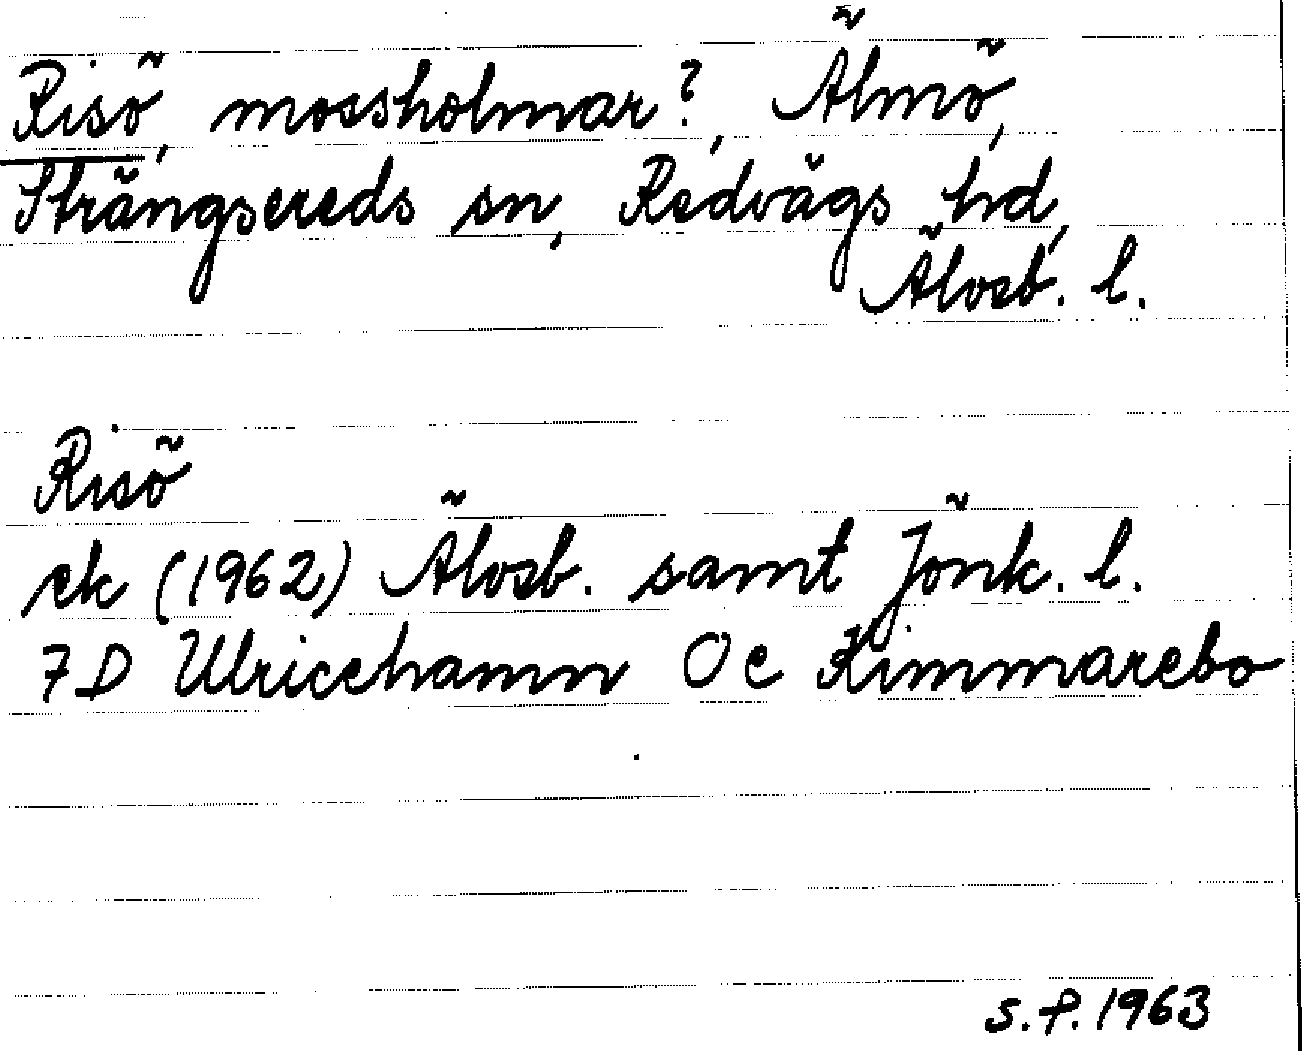 Risö, mossholmar?, Älmö,
Strängsereds sn, Redvägs hd,
Älvsb. l.
Risö
ek (1962) Älvsb. samt Jönk. l.
7D Ulricehamn Oe Kimmarebo
S.F. 1963